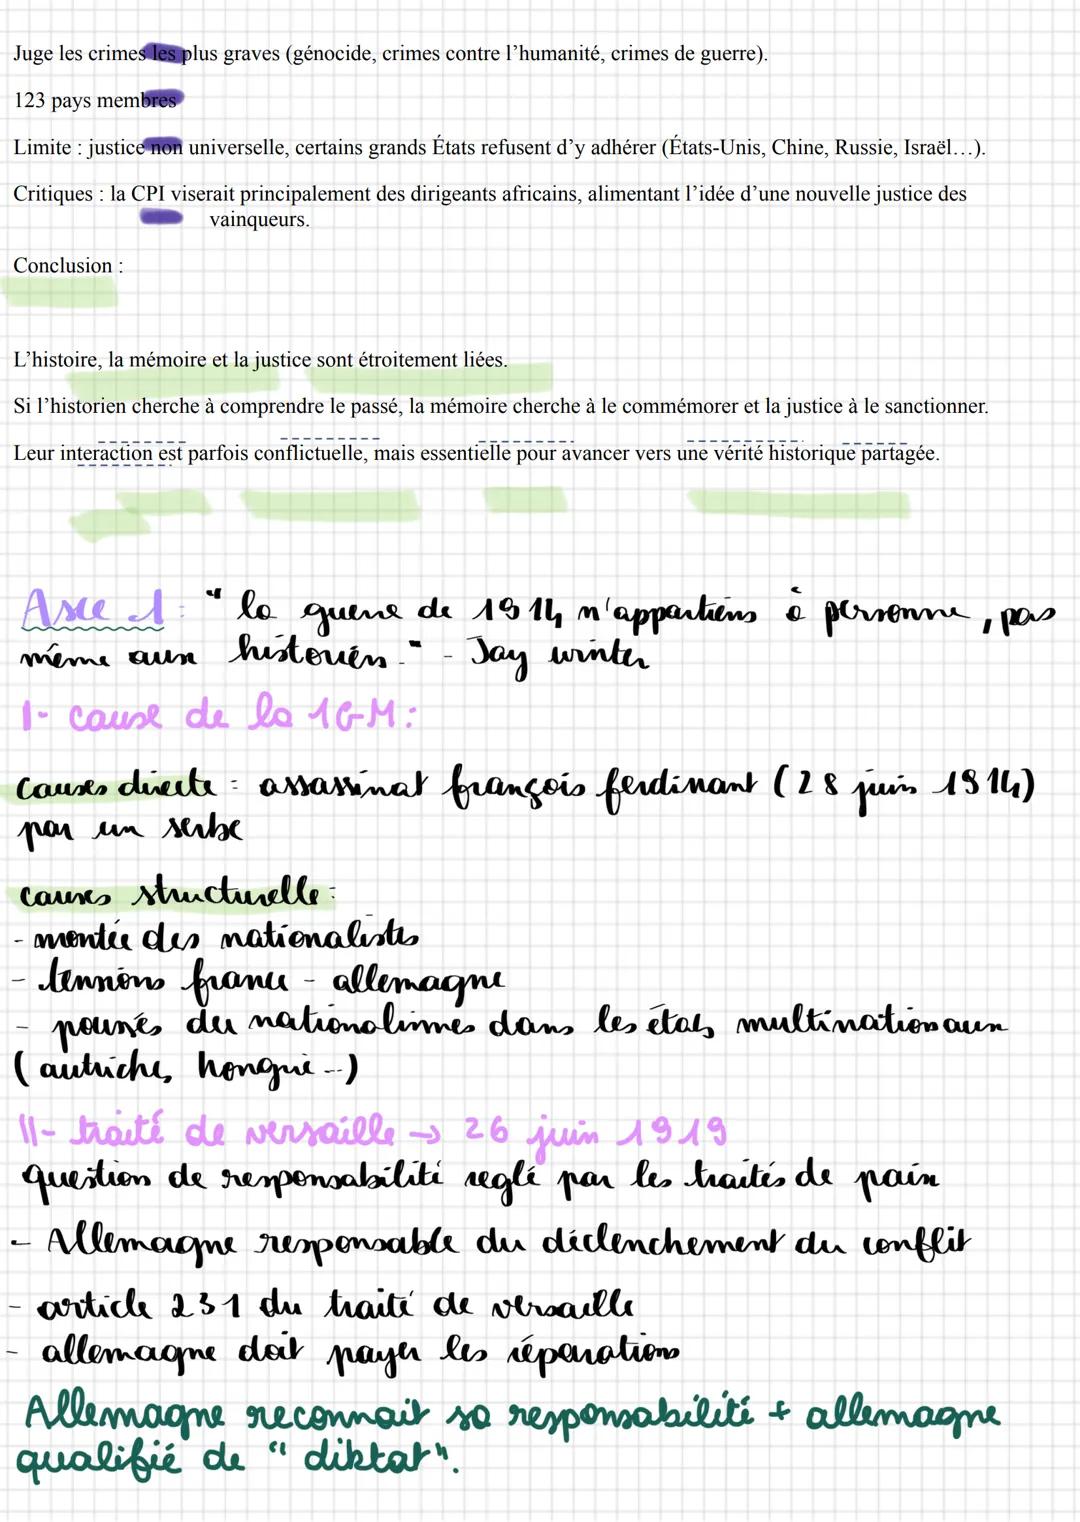 Juge les crimes les plus graves (génocide, crimes contre l'humanité, crimes de guerre).
123 pays membres
Limite : justice non universelle, certains grands États refusent d'y adhérer (États-Unis, Chine, Russie, Israël…).
Critiques : la CPI viserait principalement des dirigeants africains, alimentant l'idée d'une nouvelle justice des
vainqueurs.
Conclusion :
L'histoire, la mémoire et la justice sont étroitement liées.
Si l'historien cherche à comprendre le passé, la mémoire cherche à le commémorer et la justice à le sanctionner.
Leur interaction est parfois conflictuelle, mais essentielle pour avancer vers une vérité historique partagée.
Axe 1 : " la guerre de 1914 n'appartiens à personne, pas
même aux historien." - Jay winter
I- cause de la 1GM :
causes directe : assassinat françois ferdinant (28 juin 1914)
par un serbe
causes structurelle :
- montée des nationalistes
- tensions france - allemagne
- poussés du nationalismes dans les états multinationaux
(autriche, hongrie...)
II- traité de versaille → 26 juin 1919
question de responsabilité reglé par les traités de paix
- Allemagne responsable du déclenchement du conflit
- article 231 du traité de versaille
- allemagne doit payer les réparations
Allemagne reconnait sa responsabilité + allemagne
qualifié de " diktat".